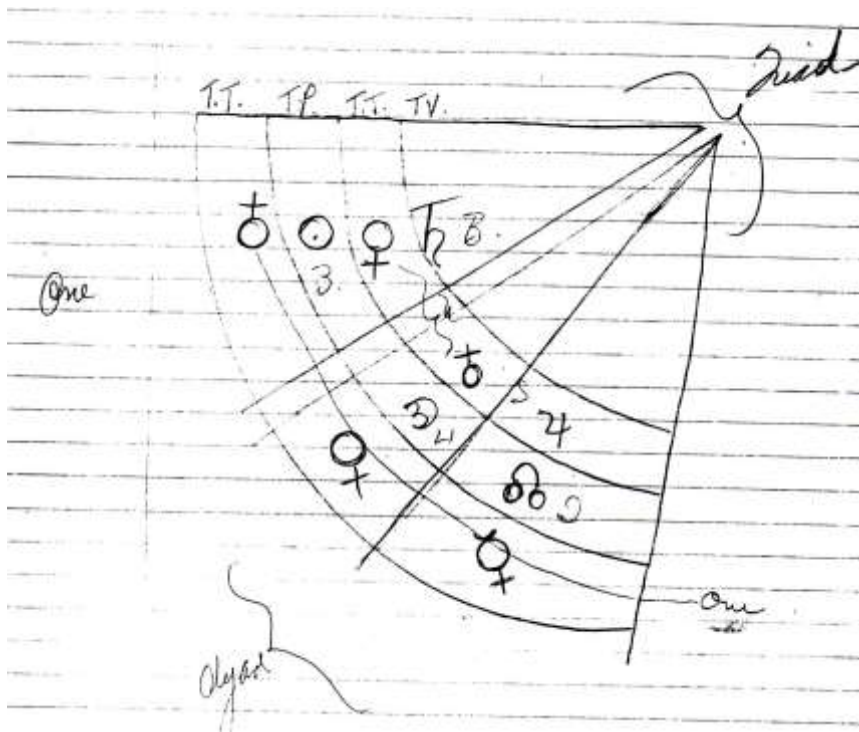 Triad
T.T. T.P. T.T. T.V.
♁ ☉ ♀ ♄ 8.
3.
One
4
♁
☽ 4
♃
♀
☊
♀
One
dyad